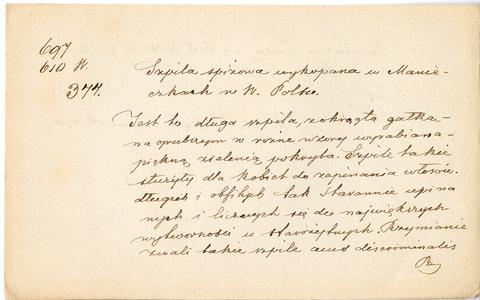 697
610 N.
377.
Szpila spiżowa wykopana w Manie-
czkach w W. Polsce.
Jest to długa szpila, zakrągła gałka-
na grubszym w rożne wzory wyrabiana-
piękną zielenią pokryta. Szpile takie
służyły dla kobiet do zapinania włosów
długich i obfitych tak starannie upina
nych i liczonych się do największych
wytworności u starożytnych. Rzymianie
zwali takie szpile acus discriminalis